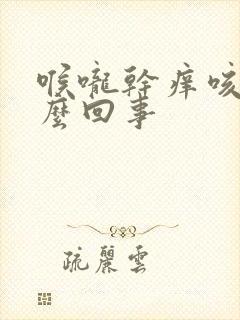 喉嚨幹癢咳
麼回事
疏麗雲